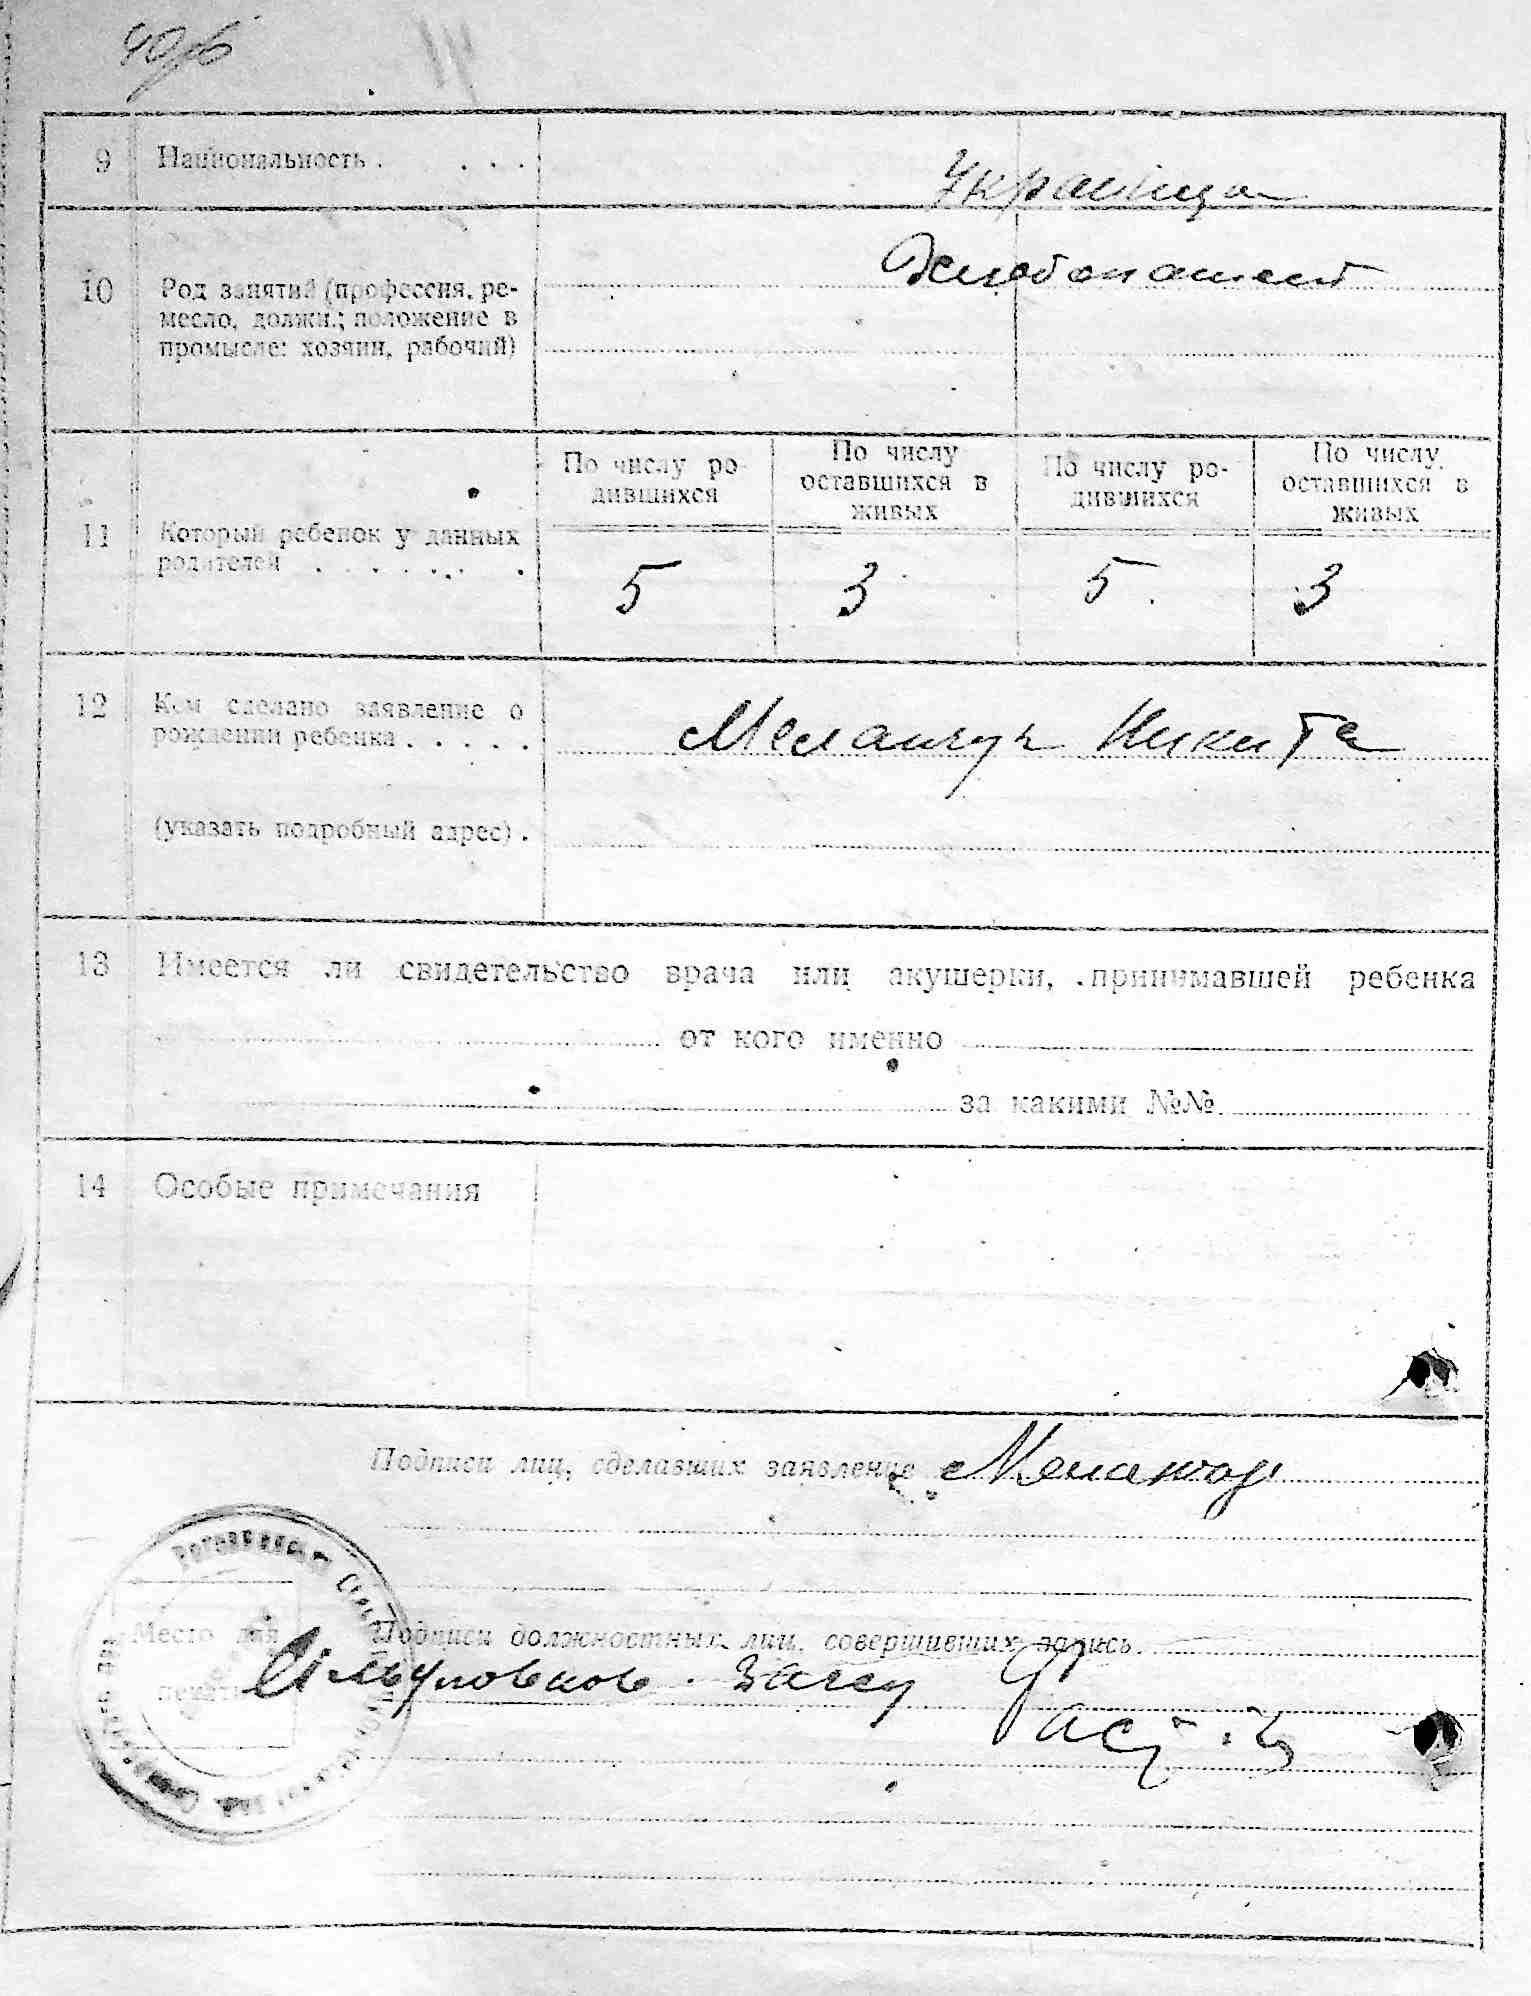 9 Национальность . . . .
Украинцы
10 Род занятий (профессия, ре-
месло, должн.; положение в
промысле: хозяин, рабочий)
Хлебопашец
11 Который ребенок у данных
родителей . . . . . . .
По числу ро-
дившихся
По числу
оставшихся в
живых
По числу ро-
дившихся
По числу
оставшихся в
живых
5 3 5 3
12 Кем сделано заявление о
рождении ребенка . . . . .
Меланчук Никита
(указать подробный адрес) .
13 Имеется ли свидетельство врача или акушерки, принимавшей ребенка
от кого именно
за какими №№
14 Особые примечания
Подписи лиц, сделавших заявление
Место для
печати
Подписи должностных лиц, совершивших запись.
загсу